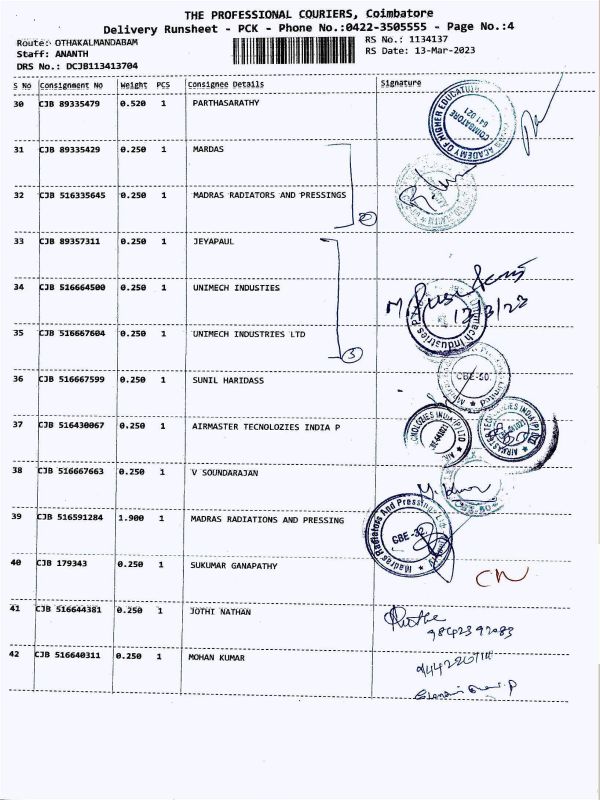 THE PROFESSIONAL COURIERS, Coimbatore
Delivery Runsheet - PCK - Phone No.:0422-3505555 - Page No.:4
Route: OTHAKALMANDABAM RS No.: 1134137
Staff: ANANTH RS Date: 13-Mar-2023
DRS No.: DCJB113413704
S No Consignment No Weight PCS Consignee Details Signature
30 CJB 89335479 0.520 1 PARTHASARATHY
ACADEMY OF HIGHER EDUCATION COIMBATORE 641 021
31 CJB 89335429 0.250 1 MARDAS
32 CJB 516335645 0.250 1 MADRAS RADIATORS AND PRESSINGS
2
33 CJB 89357311 0.250 1 JEYAPAUL
34 CJB 516664500 0.250 1 UNIMECH INDUSTIES
13/3/23
35 CJB 516667604 0.250 1 UNIMECH INDUSTRIES LTD
Unimech Industries P
3
36 CJB 516667599 0.250 1 SUNIL HARIDASS
CBE-50.
37 CJB 516430067 0.250 1 AIRMASTER TECNOLOZIES INDIA P
38 CJB 516667663 0.250 1 V SOUNDARAJAN
39 CJB 516591284 1.900 1 MADRAS RADIATIONS AND PRESSING
Madras Radiators And Pressings
CBE-32.
40 CJB 179343 0.250 1 SUKUMAR GANAPATHY
CN
41 CJB 516644381 0.250 1 JOTHI NATHAN
42 CJB 516640311 0.250 1 MOHAN KUMAR